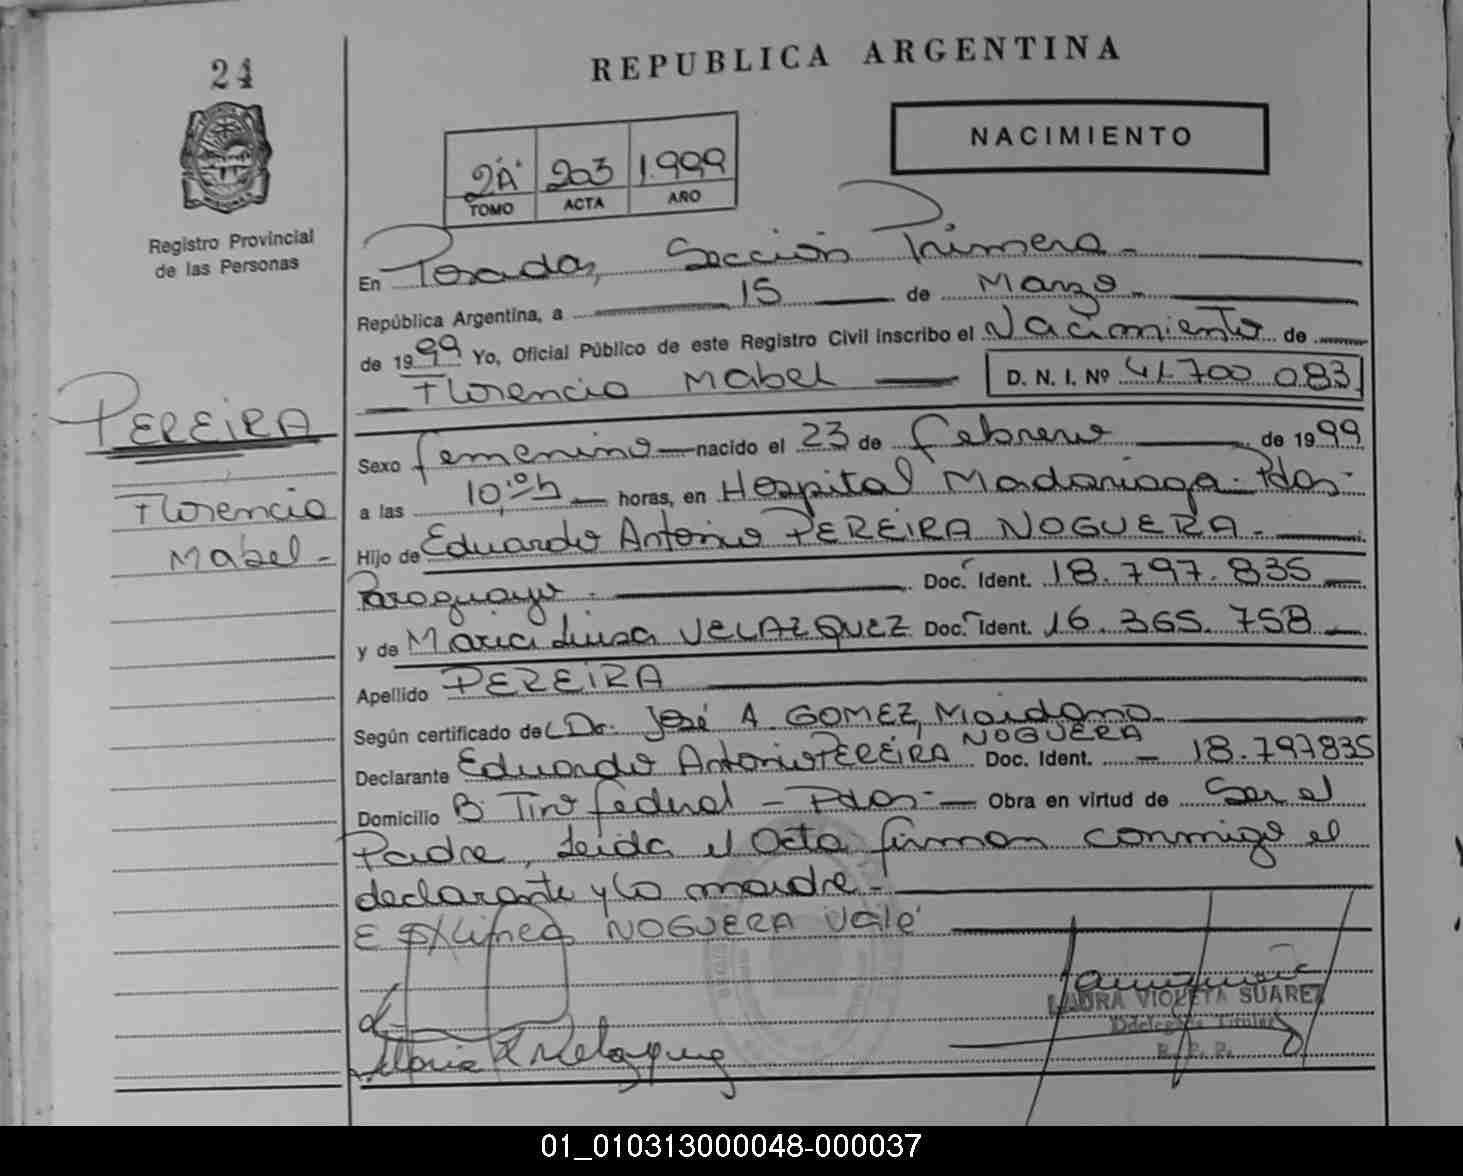 24
REPUBLICA ARGENTINA
NACIMIENTO
2'A' 203 1.999
TOMO ACTA AÑO
Registro Provincial
de las Personas
En Posadas, Sección Primera
República Argentina, a 15 de Marzo
de 1999 Yo, Oficial Público de este Registro Civil inscribo el Nacimiento de
Florencia Mabel D. N. I. Nº 41.700.083
PEREIRA
Florencia
Mabel
Sexo femenino nacido el 23 de Febrero de 1999
a las 10:05 horas, en Hospital Madariaga - Pdas -
Hijo de Eduardo Antonio PEREIRA NOGUERA
Paraguayo Doc. Ident. 18.797.835
y de Maria Luisa VELAZQUEZ Doc. Ident. 16.365.758
Apellido PEREIRA
Según certificado del Dr. José A GOMEZ,
Declarante Eduardo Antonio PEREIRA NOGUERA Doc. Ident. 18.797835
Domicilio B Tiro federal - Pdas - Obra en virtud de Ser el
Padre, Leida el Acta firman conmigo el
declarante y la madre -
E NOGUERA Vale
LAURA VIOLETA SUAREZ
Titular
R. P. P.
01_010313000048-000037